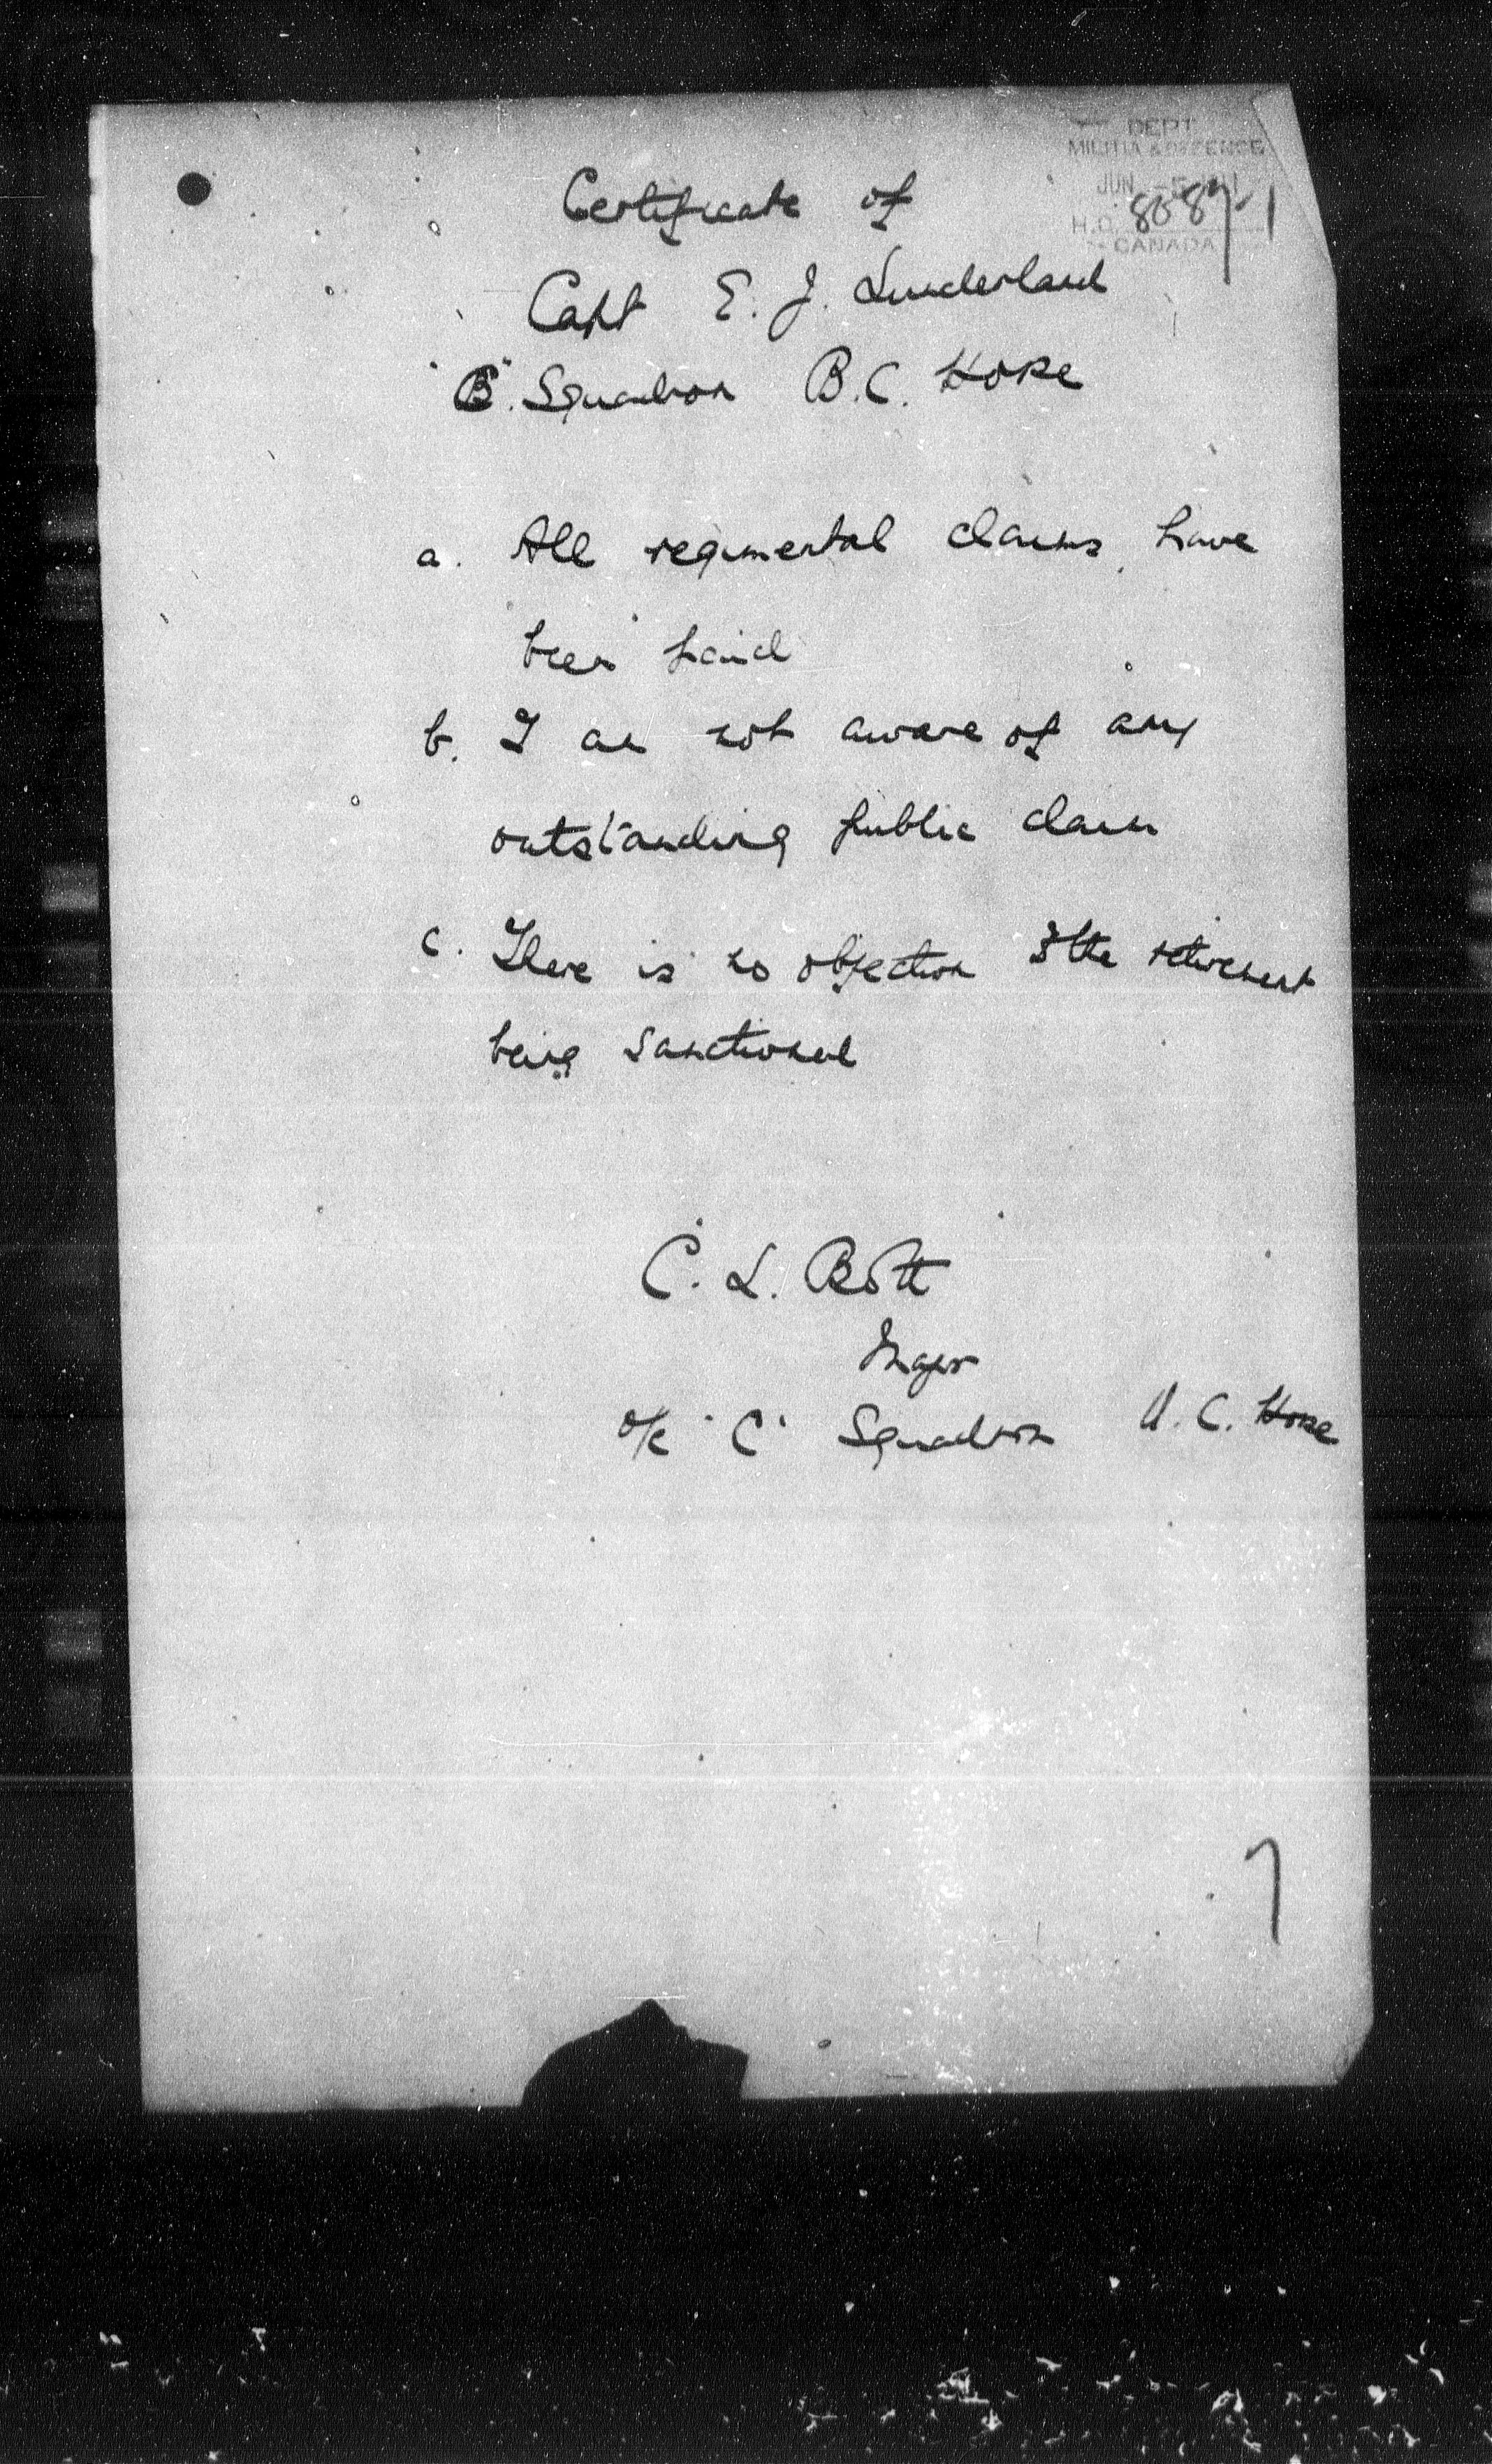 DEPT
MILITIA & DEFENCE
JUN -5 1911
H.Q. 8087-1
CANADA
Certificate of
Capt E. J. Sunderland
"B". Squadron B.C. Horse
a. All regimental claims have
been paid
b. I am not aware of any
outstanding public claim
c. There is no objection to the retirement
being sanctioned
C. L. Bott
Major
o/c "C" Squadron B.C. Horse
7